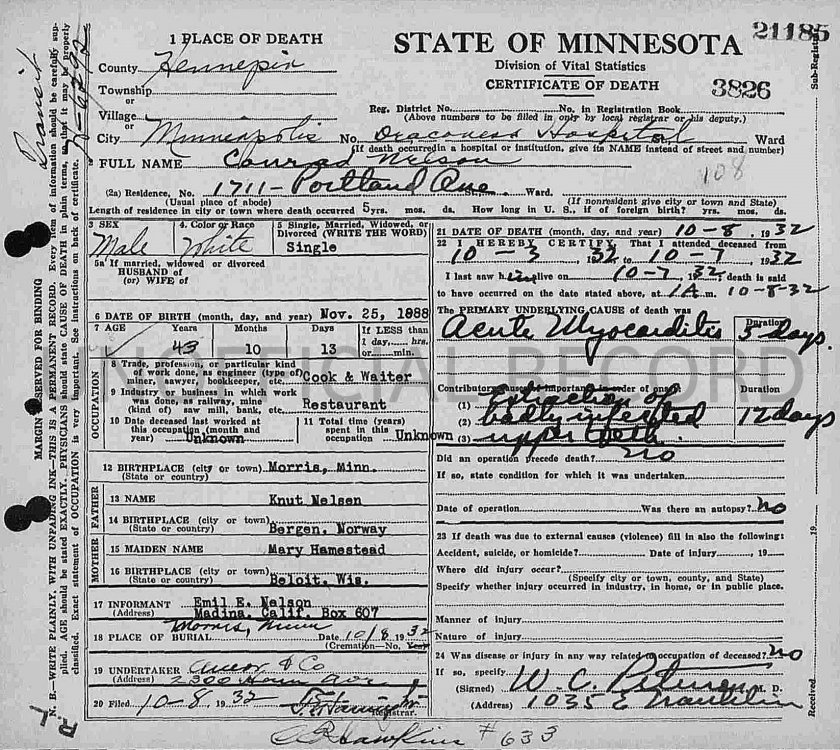 21185
1 PLACE OF DEATH
STATE OF MINNESOTA
County Hennepin
Division of Vital Statistics
CERTIFICATE OF DEATH
3826
Township
or
Village
or
Reg. District No. No. in Registration Book
(Above numbers to be filled in only by local registrar or his deputy.)
City Minneapolis No. Deaconess Hospital Ward
(If death occurred in a hospital or institution, give its NAME instead of street and number)
2 FULL NAME Conrad Nelson
108
(2a) Residence, No. 1711 - Portland Ave St. Ward.
(Usual place of abode) (If nonresident give city or town and State)
Length of residence in city or town where death occurred 5 yrs. mos. ds. How long in U. S., if of foreign birth? yrs. mos. ds.
3 SEX
Male
4 Color or Race
White
5 Single, Married, Widowed, or
Divorced (WRITE THE WORD)
Single
5a If married, widowed or divorced
HUSBAND of
(or) WIFE of
6 DATE OF BIRTH (month, day, and year) Nov. 25, 1888
7 AGE Years Months Days If LESS than
43 10 13 1 day, hrs.
or min.
OCCUPATION
8 Trade, profession, or particular kind
of work done, as engineer (type of)
miner, sawyer, bookkeeper, etc. Cook & Waiter
9 Industry or business in which work
was done, as railway, mine
(kind of), saw mill, bank, etc. Restaurant
10 Date deceased last worked at
this occupation (month and
year) Unknown
11 Total time (years)
spent in this
occupation Unknown
12 BIRTHPLACE (city or town) Morris, Minn.
(State or country)
FATHER
13 NAME Knut Nelsen
14 BIRTHPLACE (city or town)
(State or country) Bergen, Norway
MOTHER
15 MAIDEN NAME Mary Hamestead
16 BIRTHPLACE (city or town)
(State or country) Beloit, Wis.
17 INFORMANT Emil E. Nelson
(Address) Madina, Calif. Box 607
18 PLACE OF BURIAL Morris, Minn Date 10/8 1932
(Cremation—No, Yes)
19 UNDERTAKER & Co
(Address) 2300
20 Filed 10-8 1932
Registrar.
# 633
21 DATE OF DEATH (month, day, and year) 10-8, 1932
22 I HEREBY CERTIFY, That I attended deceased from
10-3 1932 to 10-7 1932
I last saw him alive on 10-7 1932, death is said
to have occurred on the date stated above, at 1 A m. 10-8-32
The PRIMARY UNDERLYING CAUSE of death was
Duration
Acute Myocarditis 5 days.
Contributory causes of importance in order of onset
Duration
(1) Extraction of
(2) badly infected 12 days
(3) upper teeth.
Did an operation precede death? no
If so, state condition for which it was undertaken
Date of operation Was there an autopsy? no
23 If death was due to external causes (violence) fill in also the following:
Accident, suicide, or homicide? Date of injury, 19
Where did injury occur?
(Specify city or town, county, and State)
Specify whether injury occurred in industry, in home, or in public place.
Manner of injury
Nature of injury
24 Was disease or injury in any way related to occupation of deceased? no
If so, specify
(Signed) W. C. M. D.
(Address) 1035 E Franklin
MARGIN RESERVED FOR BINDING
N. B.—WRITE PLAINLY, WITH UNFADING INK—THIS IS A PERMANENT RECORD. Every item of information should be carefully supplied. AGE should be stated EXACTLY. PHYSICIANS should state CAUSE OF DEATH in plain terms, so that it may be properly classified. Exact statement of OCCUPATION is very important. See instructions on back of certificate.
Transit
Received 19
Sub-Registrar
UNOFFICIAL RECORD